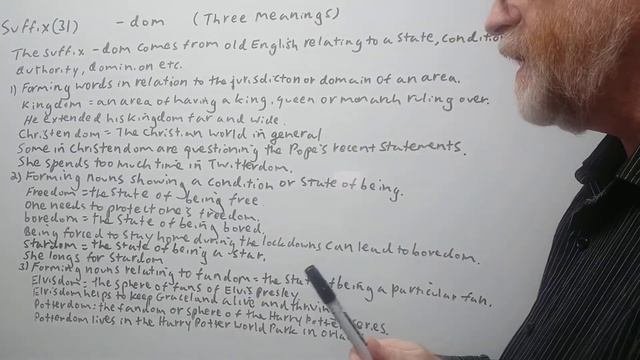 Suffix(31) -dom (Three Meanings)
The suffix -dom comes from old English relating to a state, condition
authority, dominion etc.
1) Forming words in relation to the jurisdicton or domain of an area.
Kingdom = an area of having a king, queen or monarch ruling over.
He extended his kingdom far and wide.
Christendom = The Christian world in general
Some in Christendom are questioning the Pope's recent statements.
She spends too much time in Twitterdom.
2) Forming nouns showing a condition or state of being.
Freedom = the state of being free
One needs to protect one's freedom.
boredom = the state of being bored.
Being forced to stay home during the lockdowns can lead to boredom.
Stardom = the state of being a star.
She longs for stardom
3) Forming nouns relating to fandom = the state of being a particular fan.
Elvisdom: the sphere of fans of Elvis Presley
Elvisdom helps to keep Graceland alive and thriving
Potterdom: the fandom or sphere of the Harry Potter series.
Potterdom lives in the Harry Potter World Park in